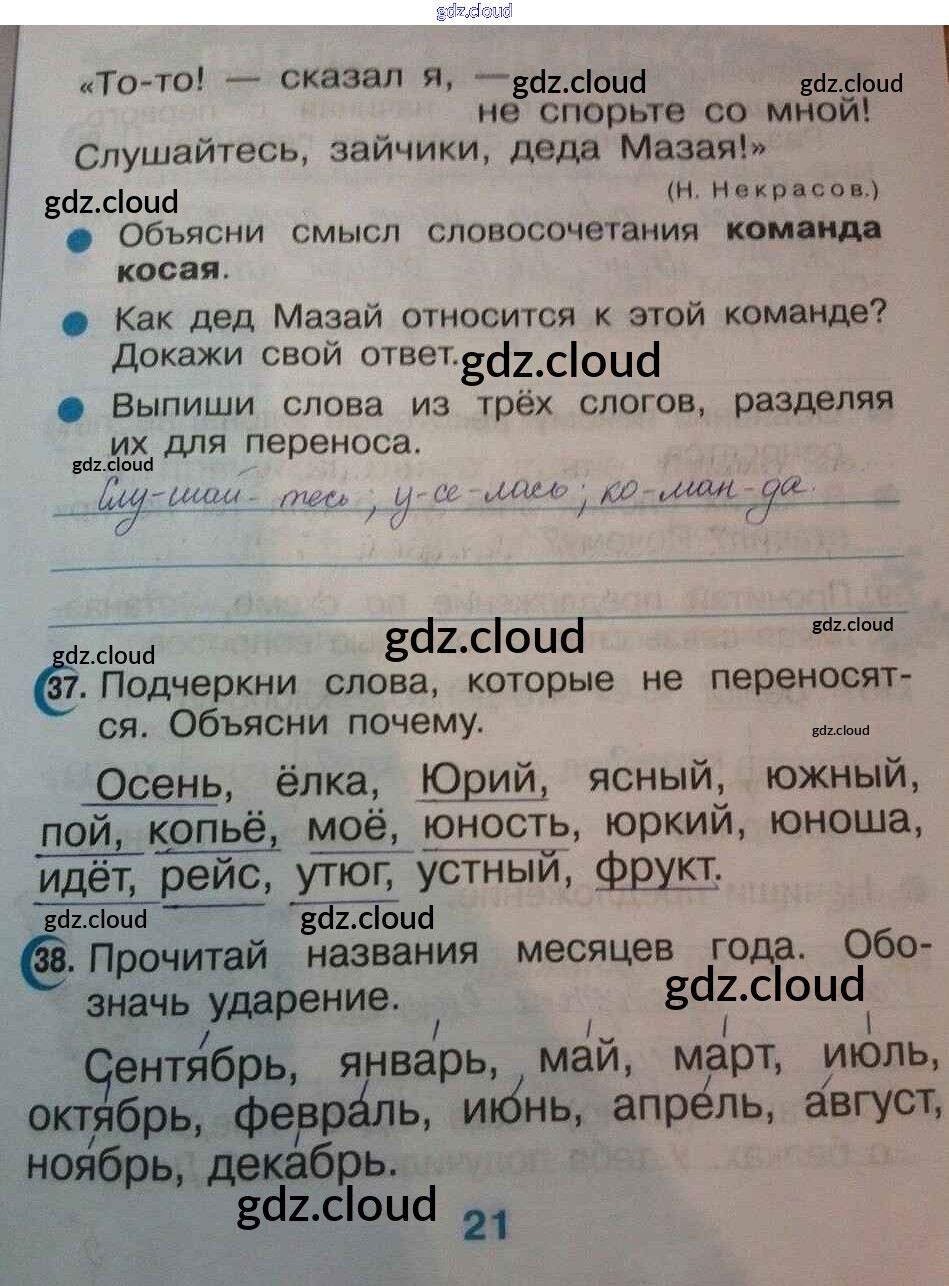 gdz.cloud
«То-то! — сказал я, —
gdz.cloud
gdz.cloud
не спорьте со мной!
Слушайтесь, зайчики, деда Мазая!»
(Н. Некрасов.)
gdz.cloud
Объясни смысл словосочетания команда
косая.
Как дед Мазай относится к этой команде?
Докажи свой ответ.
gdz.cloud
Выпиши слова из трёх слогов, разделяя
их для переноса.
gdz.cloud
Слу-шай-тесь; у-се-лась; ко-ман-да.
gdz.cloud
gdz.cloud
gdz.cloud
37. Подчеркни слова, которые не переносят-
ся. Объясни почему.
gdz.cloud
Осень, ёлка, Юрий, ясный, южный,
пой, копьё, моё, юность, юркий, юноша,
идёт, рейс, утюг, устный, фрукт.
gdz.cloud
gdz.cloud
38. Прочитай названия месяцев года. Обо-
значь ударение.
gdz.cloud
Сентябрь, январь, май, март, июль,
октябрь, февраль, июнь, апрель, август,
ноябрь, декабрь.
gdz.cloud
21